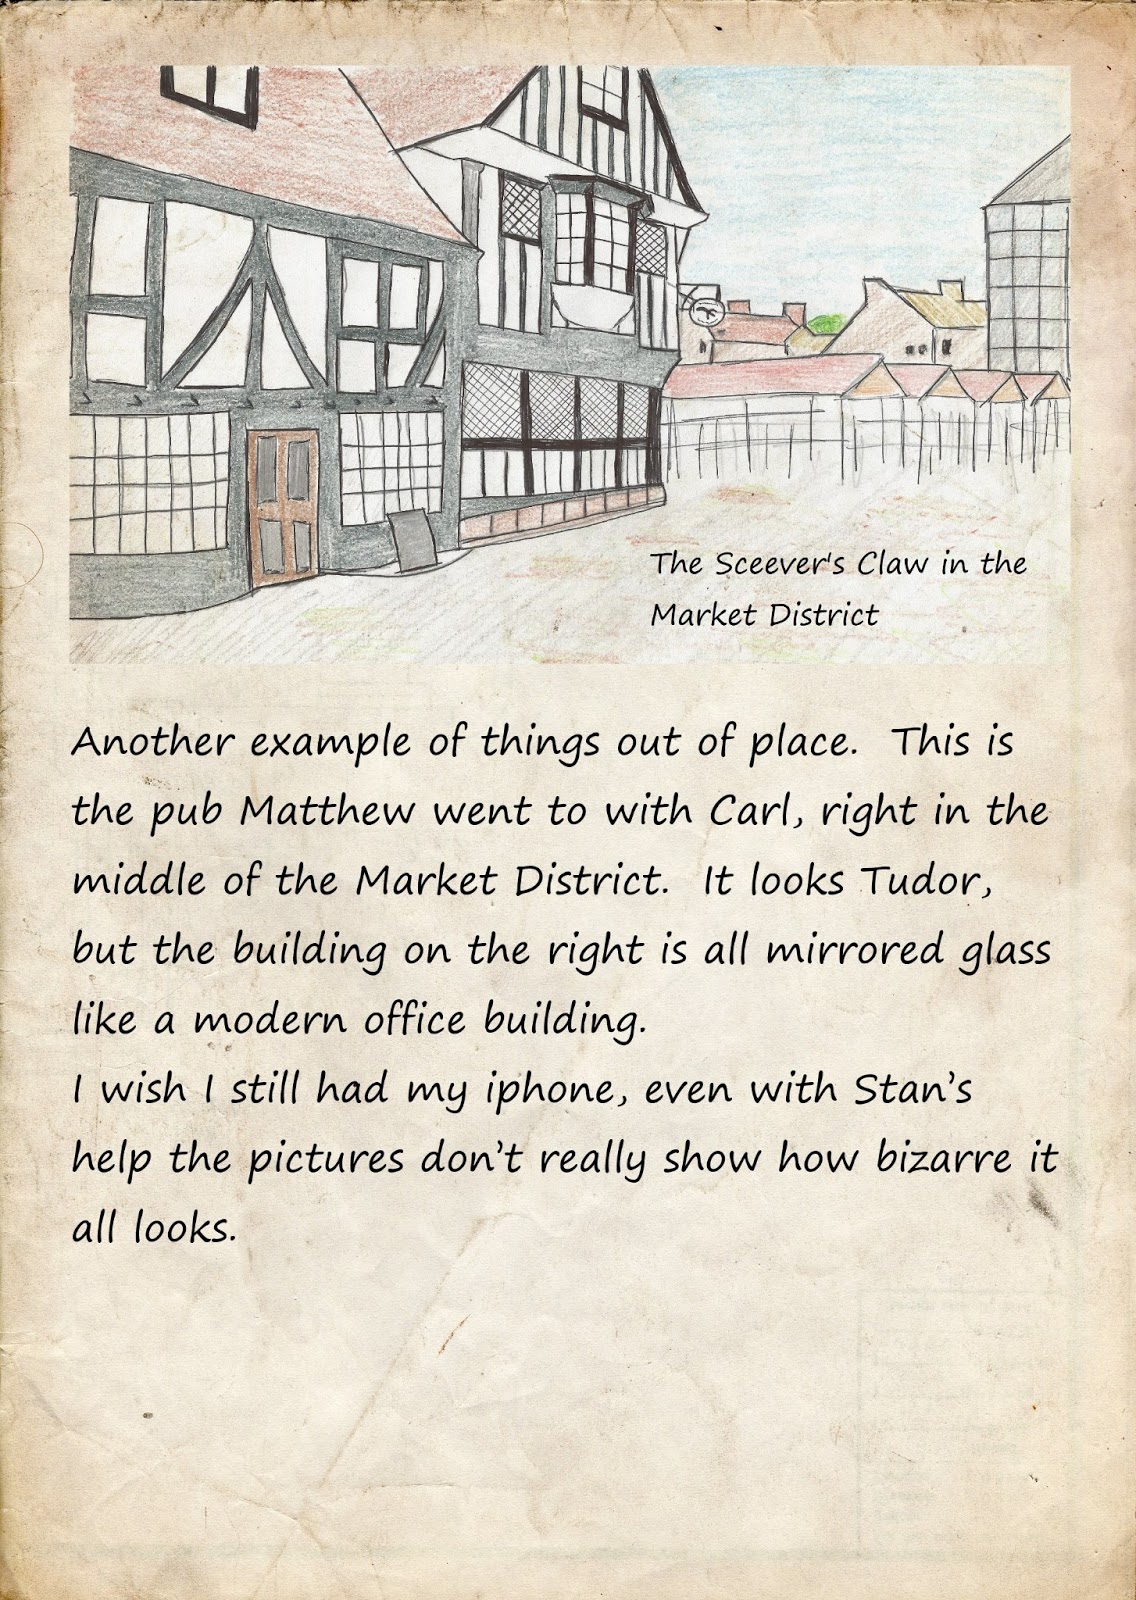 The Sceever's Claw in the
Market District
Another example of things out of place.  This is
the pub Matthew went to with Carl, right in the
middle of the Market District.  It looks Tudor,
but the building on the right is all mirrored glass
like a modern office building.
I wish I still had my iphone, even with Stan’s
help the pictures don’t really show how bizarre it
all looks.